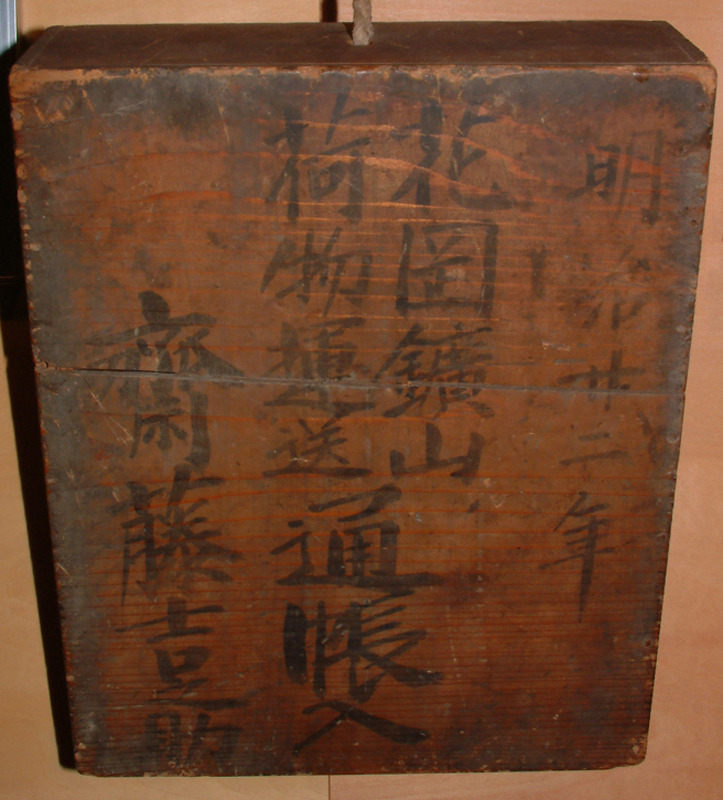 明治廿二年
花岡鑛山
荷物運送
通帳入
齋藤吉之助